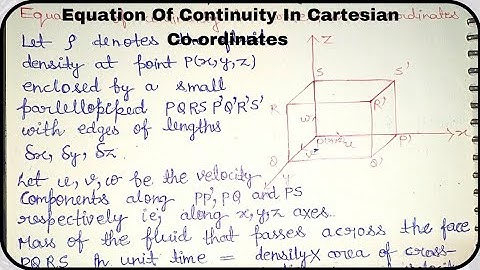 Equation Of Continuity In Cartesian
Co-ordinates
Let ρ denotes the fluid
density at point P(x,y,z)
enclosed by a small
parllelopiped PQRS P'Q'R'S'
with edges of lengths
δx, δy, δz
Let u, v, w be the velocity
Components along PP', PQ and PS
respectively ie, along x, y, z axes.
Mass of the fluid that passes across the face
PQRS in unit time = density X area of cross-
Z
S
S'
R
R'
w
P(x,y,z)
u
P'
x
v
Q
Q'
y